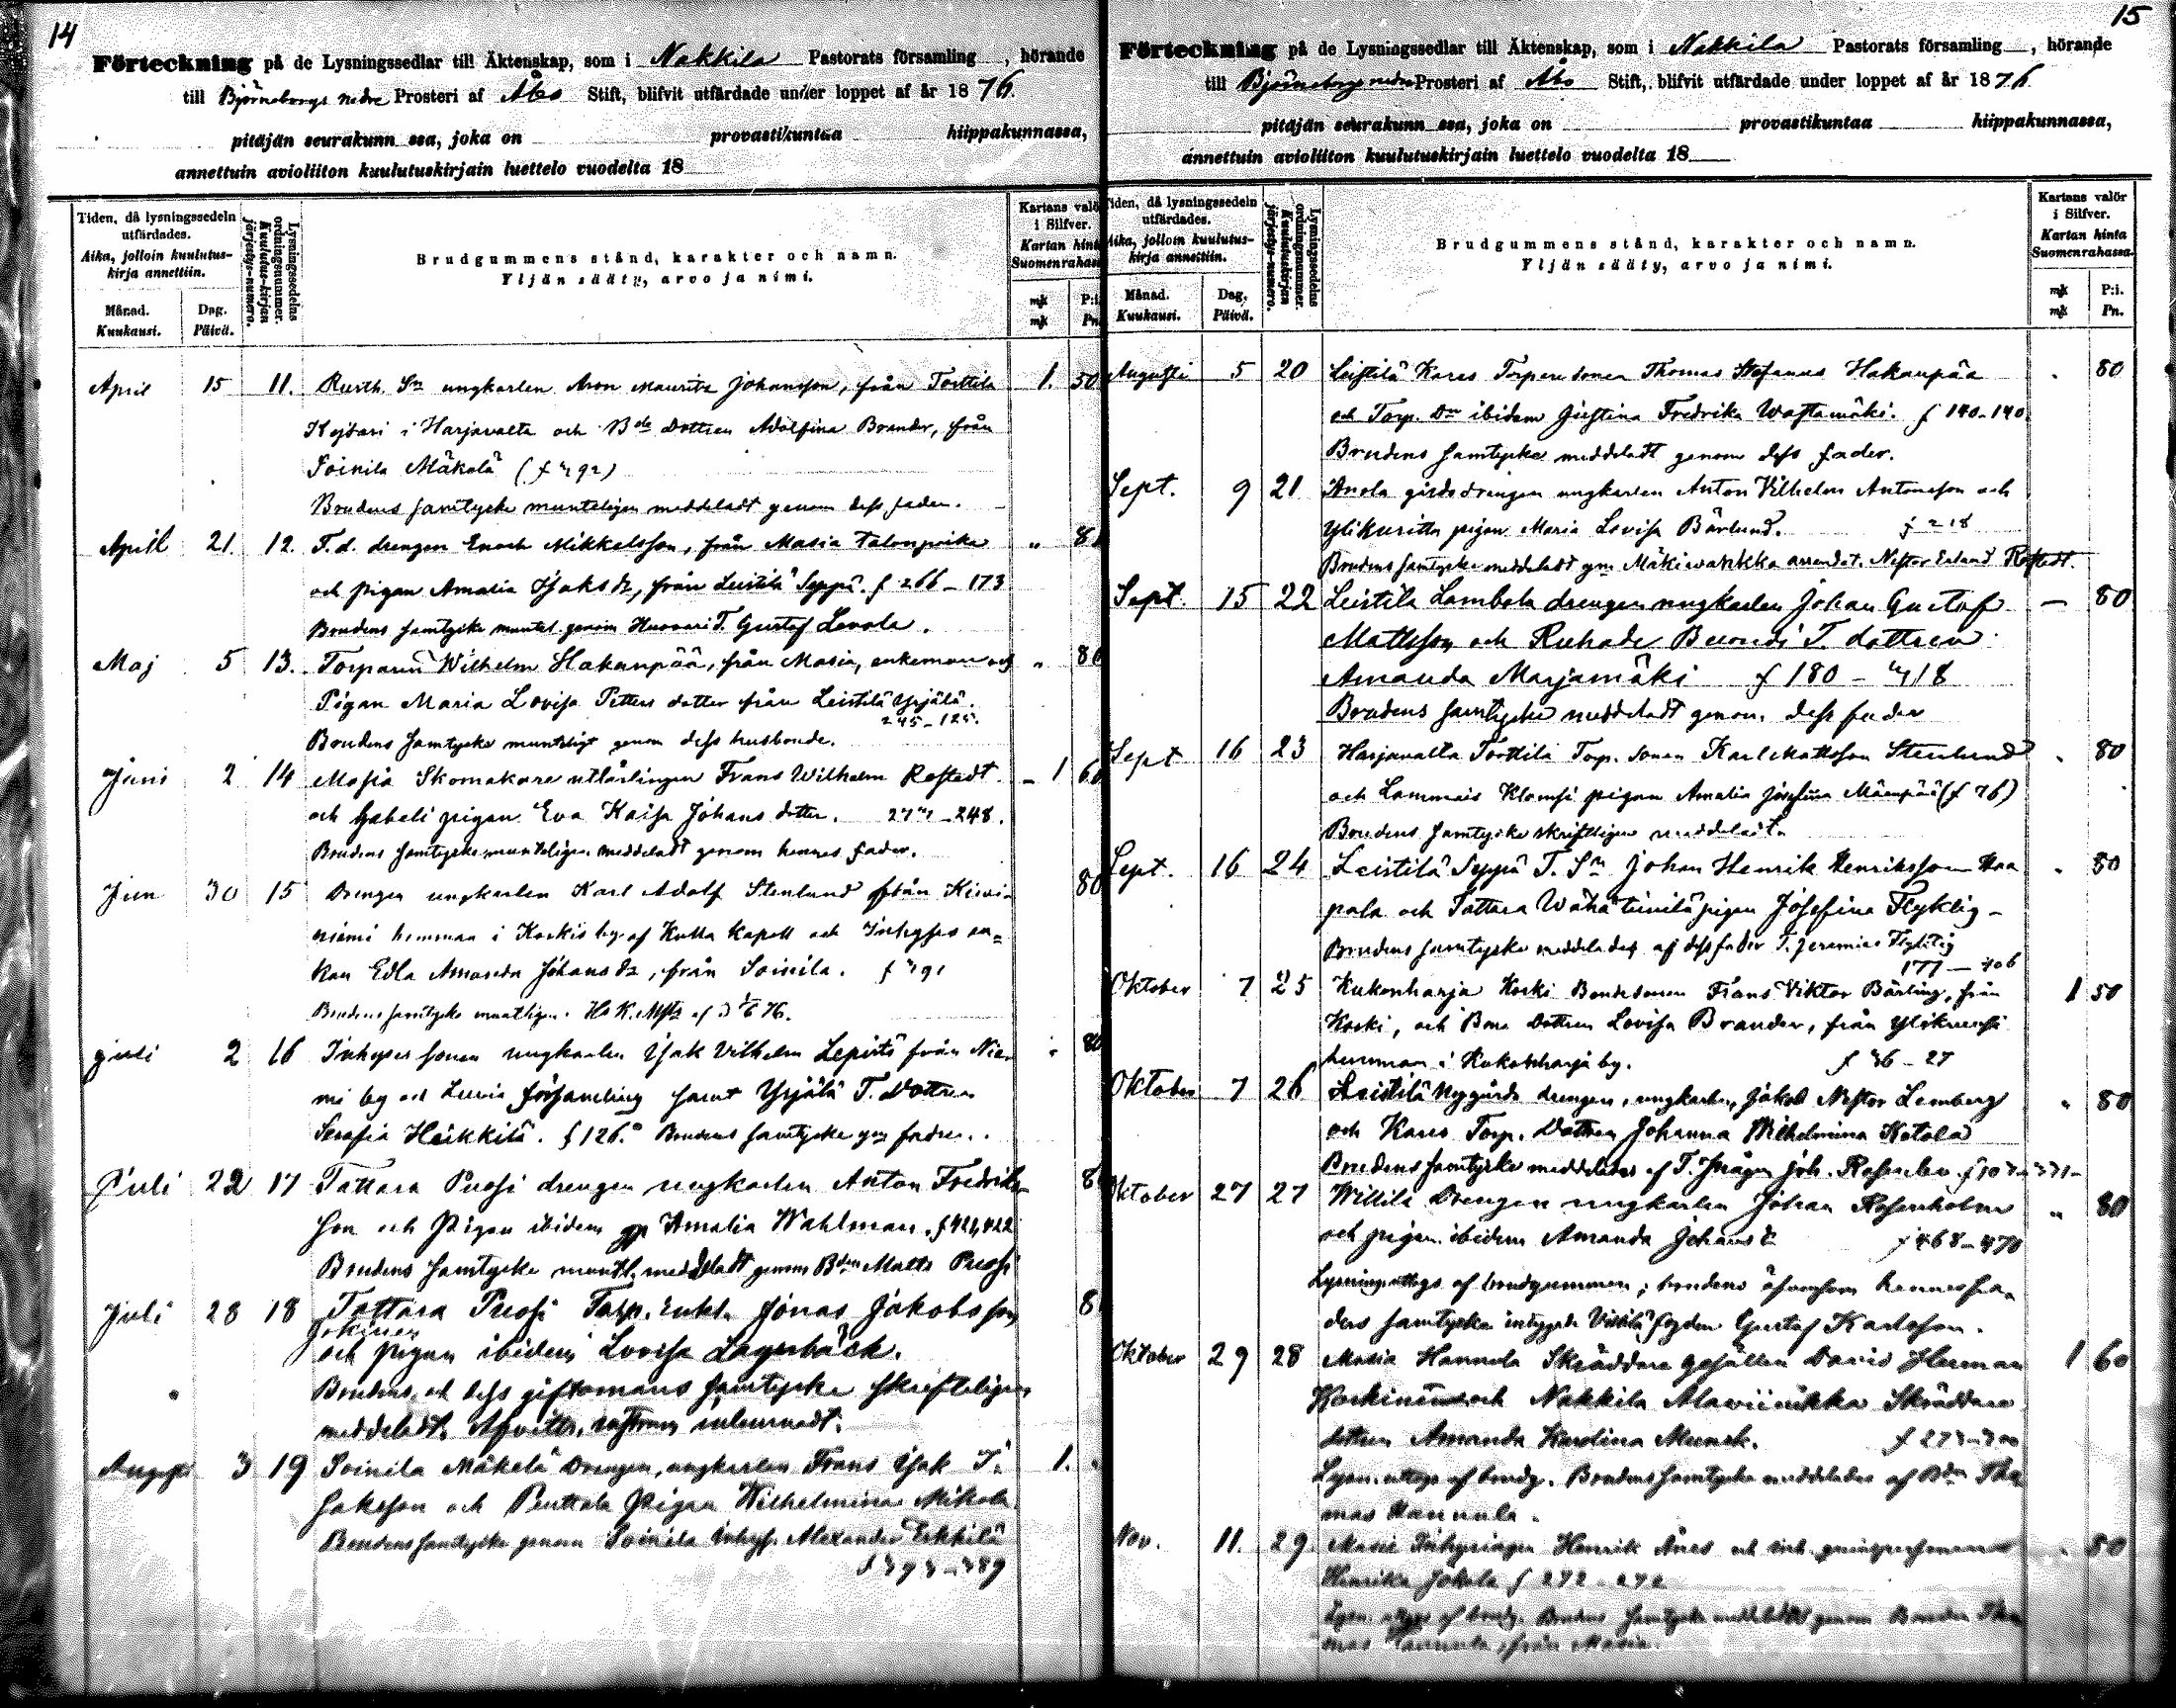 14
Förteckning på de Lysningssedlar till Äktenskap, som i Nakkila Pastorats församling , hörande
till Björneborgs nedre Prosteri af Åbo Stift, blifvit utfärdade under loppet af år 1876.
pitäjän seurakunn ssa, joka on provastikuntaa hiippakunnassa,
annettuin avioliiton kuulutuskirjain luettelo vuodelta 18
Tiden, då lysningssedeln utfärdades.
Aika, jolloin kuulutus-kirja annettiin.
Månad. Kuukausi.
Dag. Päivä.
Lysningssedelns ordningsnummer. Kuulutus-kirjan järjestys-numero.
Brudgummens stånd, karakter och namn.
Yljän sääty, arvo ja nimi.
Kartans valör i Silfver.
Kartan hinta Suomenrahassa
mk P:i.
mk Pn.
April 15 11. Rusth. Sn ungkarlen Aron Maurits Johansson, från Torttila 1. 50
i Harjavalta och Bde Dottren Adolfina Brander, från
Soinila Mäkelä
Brudens samtycke munteligen meddeladt genom dess fader.
April 21. 12. F. d. drengen Enoch Mikkelsson, från Masia " 8
och pigan Amalia Isaks dr, från Leistilä Seppä. f 266 - 173
Brudens samtycke muntel. genom T. Gustaf Lavola.
Maj 5 13. Torparen Wilhelm Hakanpää, från Masia, enkeman och " 80
Pigan Maria Lovisa Petters dotter från Leistilä Yrjälä.
245 - 125.
Brudens samtycke muntligt genom dess husbonde.
Juni 2 14 Masia Skomakare utlärlingen Frans Wilhelm Rostedt - 1 60
och Gabeli pigan Eva Kaisa Johans dotter. - 248.
Brudens samtycke munteligen meddeladt genom hennes fader.
Jun 30 15 Drengen ungkarlen Karl Adolf Stenlund från Kiwi- 80
niemi hemman i Koskis by af Kulla Kapell och Inhyses en=
kan Edla Amanda Johans dr, från Soinila.
Brudens samtycke muntligen.
Juli 2 16 Inhyses sonen ungkarlen Isak Vilhelm Lepistö från Nie- " 80
mi by och Luvia församling samt Yrjälä T. Dottren
Serafia Heikkilä. f 126. Brudens samtycke gm fadren.
Juli 22 17 Tattara Puosi drengen ungkarlen Anton Fredriks-
son och Pigan ibidem Amalia Wahlman. f 421, 422
Brudens samtycke muntl. meddeladt genom Bden Matts Puosi
Juli 28 18 Tattara Puosi Torp. Enkl. Jonas Jakobsson 8
Jokinen
och pigan ibidem Lovisa Lagerbäck.
Brudens och dess giftomans samtycke skrifteligen
meddeladt.
Augusti 3 19 Soinila Mäkelä Drengen, ungkarlen Frans Isak I- 1. "
saksson och Penttala Pigan Wilhelmina Mikola
Brudens samtycke genom Soinila Inhys. Alexander Erkkilä
15
Förteckning på de Lysningssedlar till Äktenskap, som i Nakkila Pastorats församling , hörande
till Björneborgs nedre Prosteri af Åbo Stift, blifvit utfärdade under loppet af år 1876
pitäjän seurakunn ssa, joka on provastikuntaa hiippakunnassa,
annettuin avioliiton kuulutuskirjain luettelo vuodelta 18
Tiden, då lysningssedeln utfärdades.
Aika, jolloin kuulutus-kirja annettiin.
Månad. Kuukausi.
Dag. Päivä.
Lysningssedelns ordningsnummer. Kuulutus-kirjan järjestys-numero.
Brudgummens stånd, karakter och namn.
Yljän sääty, arvo ja nimi.
Kartans valör i Silfver.
Kartan hinta Suomenrahassa.
mk P:i.
mk Pn.
Augusti 5 20 Leistilä Kares Torpare sonen Thomas Stefanus Hakanpää " 80
och Torp. Dn ibidem Justina Fredrika Wastamäki. f 140 - 140.
Brudens samtycke meddeladt genom dess fader.
Sept. 9 21 Anola gårds drengen ungkarlen Anton Vilhelm Antonsson och
pigan Maria Lovisa Bärlund. f 218
Brudens samtycke meddeladt gm arrendat. Nestor Erland Rostedt.
Sept. 15 22 Leistilä Lambola drengen ungkarlen Johan Gustaf — 80
Mattsson och Ruhade T. dottren
Amanda Marjamäki f 180 -
Brudens samtycke meddeladt genom dess fader
Sept 16 23 Harjavalta Torttila Torp. sonen Karl Mattsson Stenlund " 80
och Lammais Klomsi pigan Amalia Josefina Mäenpää (f 76)
Brudens samtycke skriftligen meddeladt.
Sept. 16 24 Leistilä Seppä T. Sn Johan Henrik Henriksson Haa " 80
pala och Tattara pigan Josefina Flyktig -
Brudens samtycke meddelades af dess fader T. Jeremias Flyktig
177 — 406
Oktober 7 25 Kukonharja Koski Bondesonen Frans Viktor Bärling, från 1 50
Koski, och Bone Dottren Lovisa Brander, från
hemman i Kukonharja by. f 36 - 27
Oktober 7 26 Leistilä Nygårds drengen, ungkarlen, Jakob Nestor Lemberg " 80
och Kares Torp. Dottren Johanna Wilhelmina Ketola
Brudens samtycke meddelades af T.
Oktober 27 27 Willilä Drengen ungkarlen Johan Rosenholm " 80
och pigan ibidem Amanda Johans dr f 468 - 470
Lysning uttogs af brudgummen; brudens äfvensom hennes fa-
ders samtycke intygade Villilä fogden Gustaf Karlsson.
Oktober 29 28 Masia Hannula Skräddare gesällen David Herman 1 60
Koskinen och Nakkila Alaviinikka Skräddare
dottren Amanda Karolina Munck.
Lysn. uttogs af brudg. Brudens samtycke meddelades af Bdn Tho
mas Hannula.
Nov. 11. 29 Masia Inhysingen Henrik Ånes och " 80
Henrika Jokela f 272 - 272
Lysn. uttogs af brudg. Brudens samtycke meddeladt genom Bonden Tho
mas Hannula, från Masia.